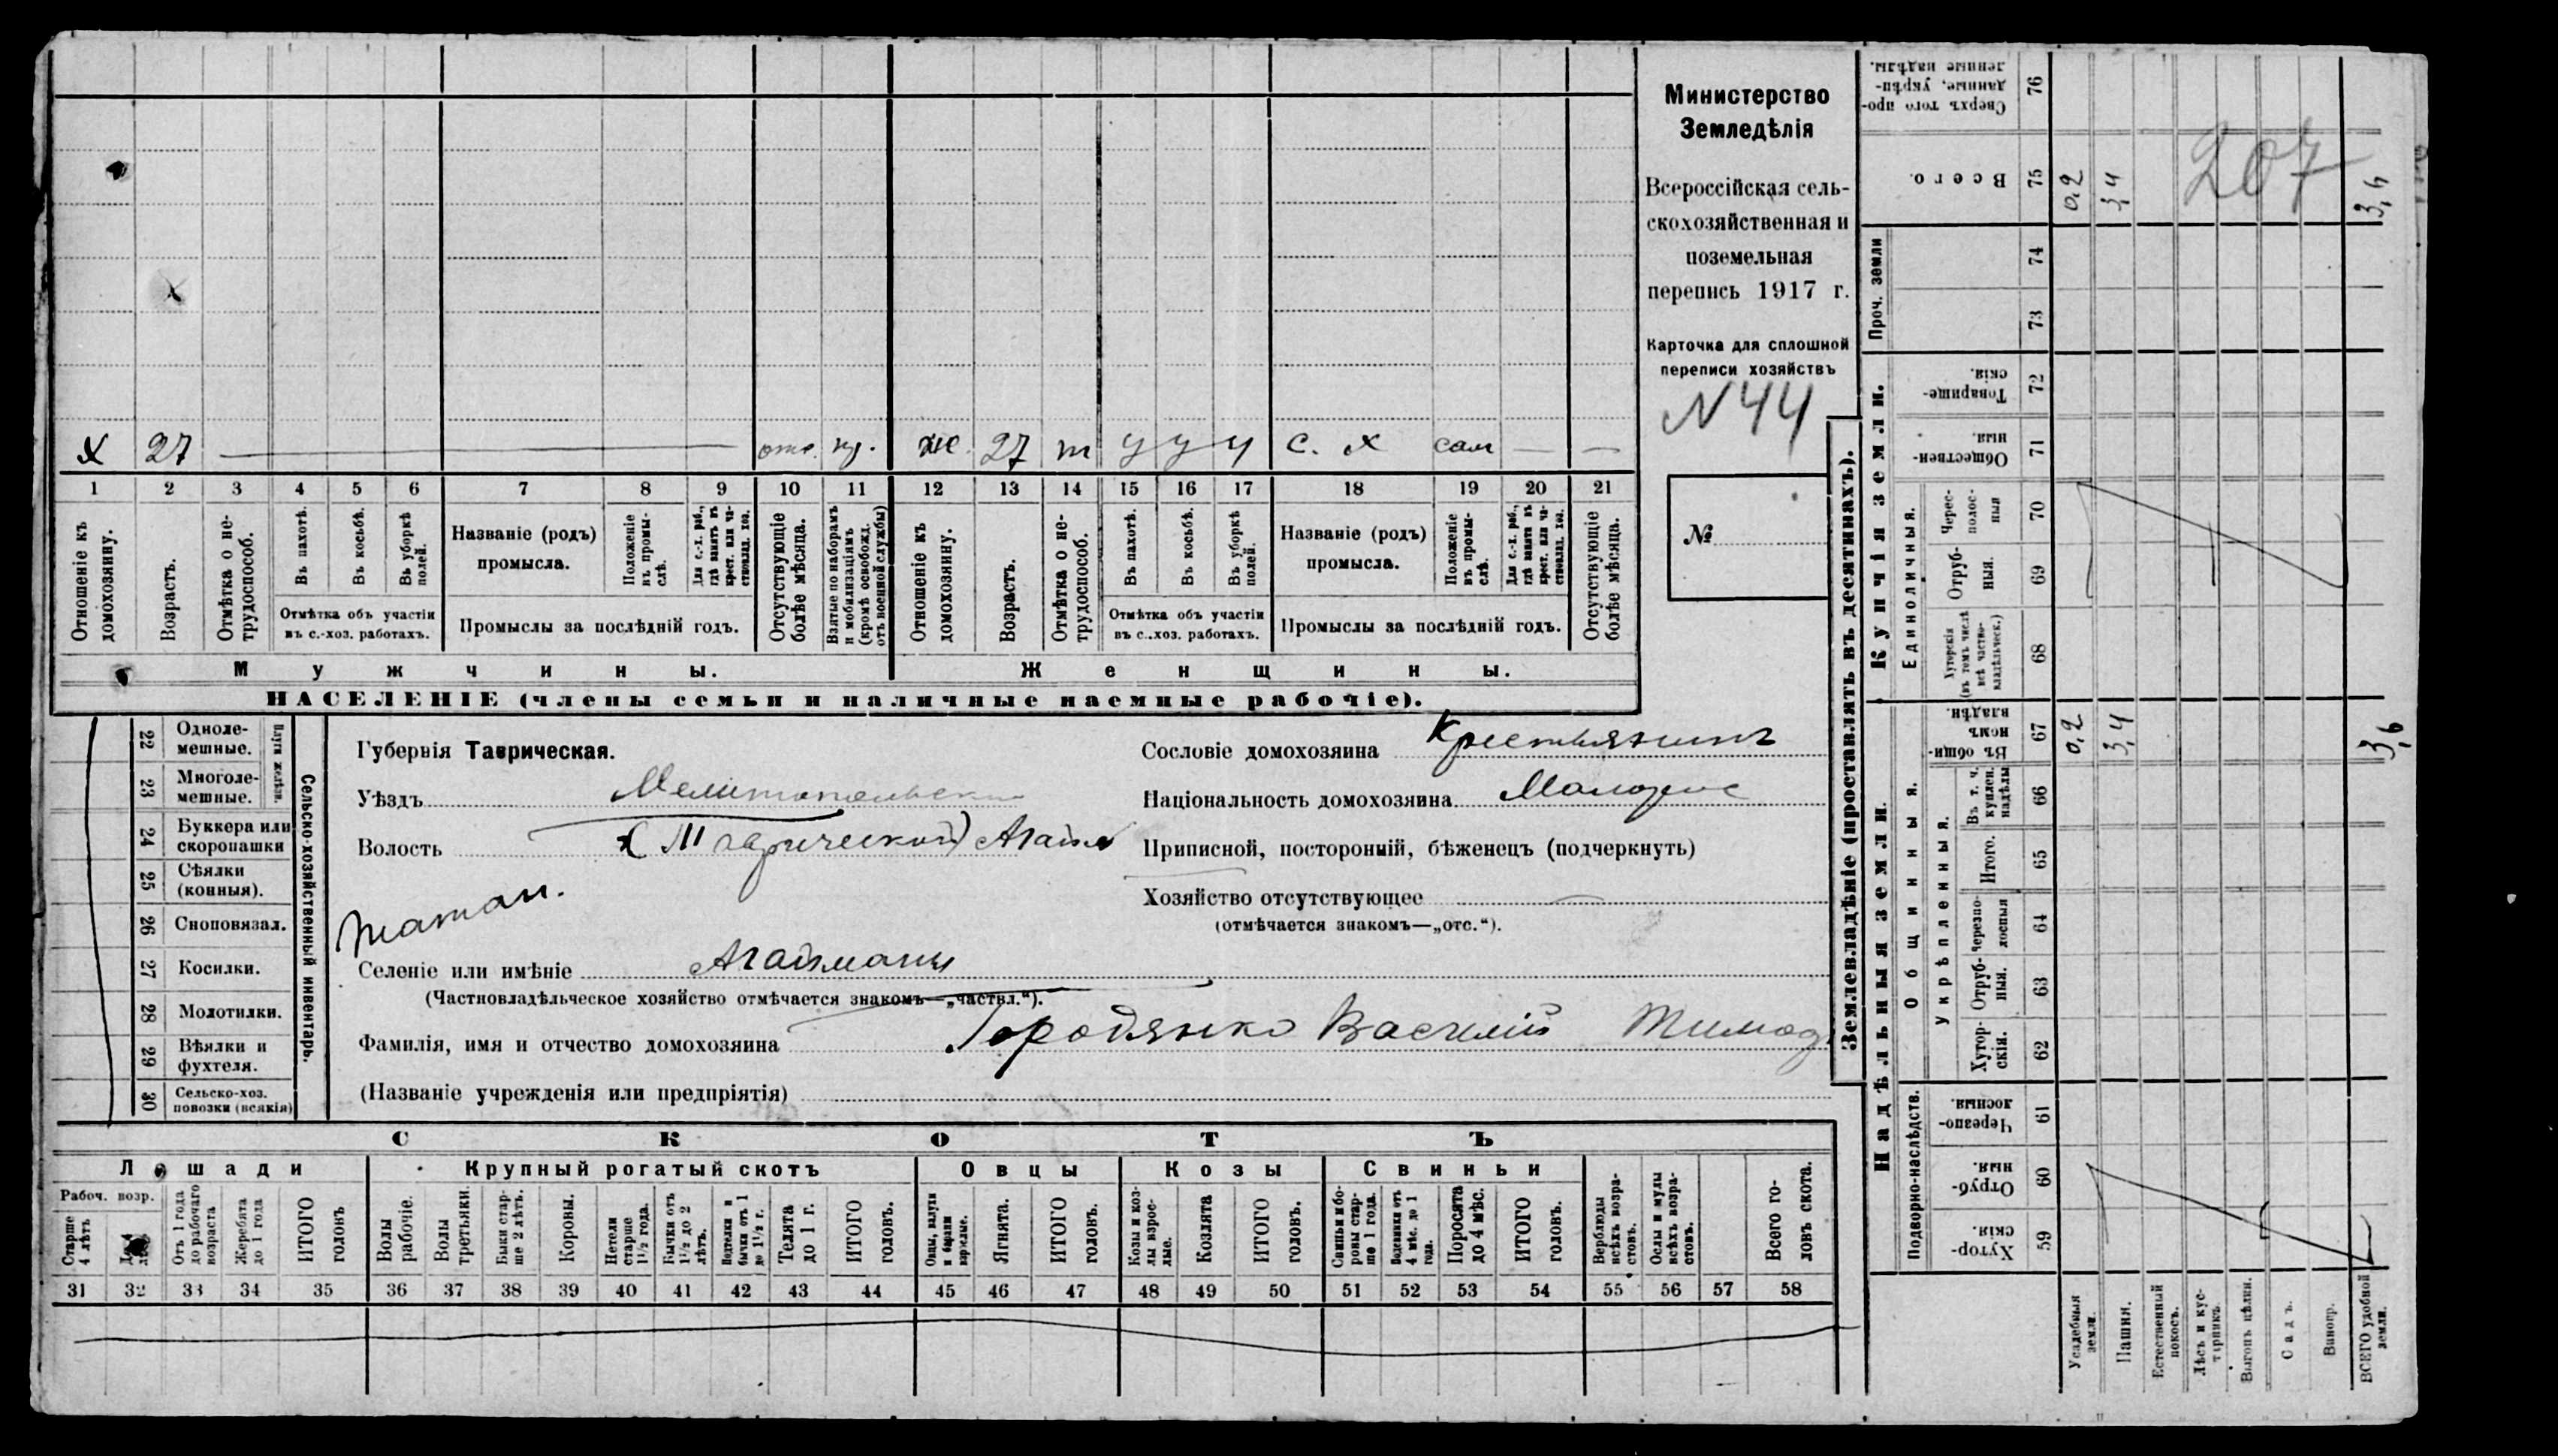 Министерство
Земледѣлія
Всероссійская сель-
скохозяйственная и
поземельная
перепись 1917 г.
Карточка для сплошной
переписи хозяйствъ
N44
№
х 27 отс. ж. 27 т у у у с. х сам
1 2 3 4 5 6 7 8 9 10 11 12 13 14 15 16 17 18 19 20 21
Отношеніе къ домохозяину.
Возрастъ.
Отмѣтка о не-трудоспособ.
Въ пахотѣ.
Въ косьбѣ.
Въ уборкѣ полей.
Отмѣтка объ участіи
въ с.-хоз. работахъ.
Названіе (родъ)
промысла.
Положеніе въ промы-слѣ.
Для с.-х. раб., гдѣ занятъ въ крест. или ча-стновлад. хоз.
Промыслы за послѣдній годъ.
Отсутствующіе болѣе мѣсяца.
Взятые по наборамъ и мобилизаціямъ (кромѣ освобожд. отъ военной службы)
Отношеніе къ домохозяину.
Возрастъ.
Отмѣтка о не-трудоспособ.
Въ пахотѣ.
Въ косьбѣ.
Въ уборкѣ полей.
Отмѣтка объ участіи
въ с.-хоз. работахъ.
Названіе (родъ)
промысла.
Положеніе въ промы-слѣ.
Для с.-х. раб., гдѣ занятъ въ крест. или ча-стновлад. хоз.
Промыслы за послѣдній годъ.
Отсутствующіе болѣе мѣсяца.
Мужчины. Женщины.
НАСЕЛЕНІЕ (члены семьи и наличные наемные рабочіе).
Сельско-хозяйственный инвентарь.
22 Одноле-мешные.
23 Многоле-мешные.
24 Буккера или скоропашки
25 Сѣялки (конныя).
26 Сноповязал.
27 Косилки.
28 Молотилки.
29 Вѣялки и фухтеля.
30 Сельско-хоз. повозки (всякія)
Губернія Таврическая.
Уѣздъ Мелитопольскій
Волость (Таврической) Агайм
Селеніе или имѣніе Агайманы
(Частновладѣльческое хозяйство отмѣчается знакомъ—„частвл.“).
Фамилія, имя и отчество домохозяина Городянко Василій Тимоф
(Названіе учрежденія или предпріятія)
Сословіе домохозяина Крестьянинъ
Національность домохозяина Малорос
Приписной, посторонній, бѣженецъ (подчеркнуть)
Хозяйство отсутствующее
(отмѣчается знакомъ—„отс.“).
СКОТЪ
Лошади Крупный рогатый скотъ Овцы Козы Свиньи
Рабоч. возр.
Старше 4 лѣтъ
Отъ 1 года до рабочаго возраста
Жеребята до 1 года
ИТОГО головъ
Волы рабочіе.
Волы третьяки.
Быки стар-ше 2 лѣтъ.
Коровы.
Нетели старше 1½ года.
Бычки отъ 1½ до 2 лѣтъ.
Подтелки и бычки отъ 1 до 1½ г.
Телята до 1 г.
ИТОГО головъ.
Овцы, валухи и бараны взрослые.
Ягнята.
ИТОГО головъ.
Козы и коз-лы взрос-лые.
Козлята
ИТОГО головъ.
Свиньи и бо-ровы стар-ше 1 года.
Подсвинки отъ 4 мѣс. до 1 года.
Поросята до 4 мѣс.
ИТОГО головъ.
Верблюды всѣхъ возра-стовъ.
Ослы и мулы всѣхъ возра-стовъ.
Всего го-ловъ скота.
31 32 33 34 35 36 37 38 39 40 41 42 43 44 45 46 47 48 49 50 51 52 53 54 55 56 57 58
Землевладѣніе (проставлять въ десятинахъ).
Надѣльныя земли. Купчія земли. Проч. земли
Подворно-наслѣдств.
Общинныя.
Укрѣпленныя.
Единоличныя.
Хутор-скія. 59
Отруб-ныя. 60
Черезпо-лосныя. 61
Хутор-скія. 62
Отруб-ныя. 63
Черезпо-лосныя 64
Итого. 65
Въ т. ч. куплен. надѣлы 66
Въ общи-номъ владѣн. 67 0,2 3,4 3,6
Хуторскія (въ томъ числѣ всѣ частно-владѣльческ.) 68
Отруб-ныя. 69
Черес-полос-ныя 70
Обществен-ныя. 71
Товарище-скія. 72
73
74
Всего. 75 0,2 3,4 3,6
Сверхъ того про-данные, укрѣп-ленные надѣлы. 76
207
Усадебныя земли.
Пашня.
Естественный покосъ.
Лѣсъ и кус-тарникъ.
Выгонъ цѣлин.
Садъ.
Виногр.
ВСЕГО удобной земли.